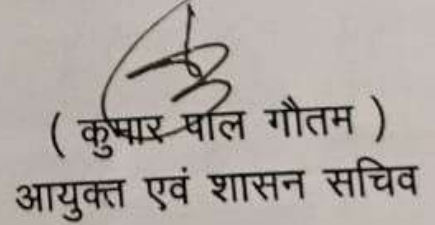 ( कुमार पाल गौतम )
आयुक्त एवं शासन सचिव